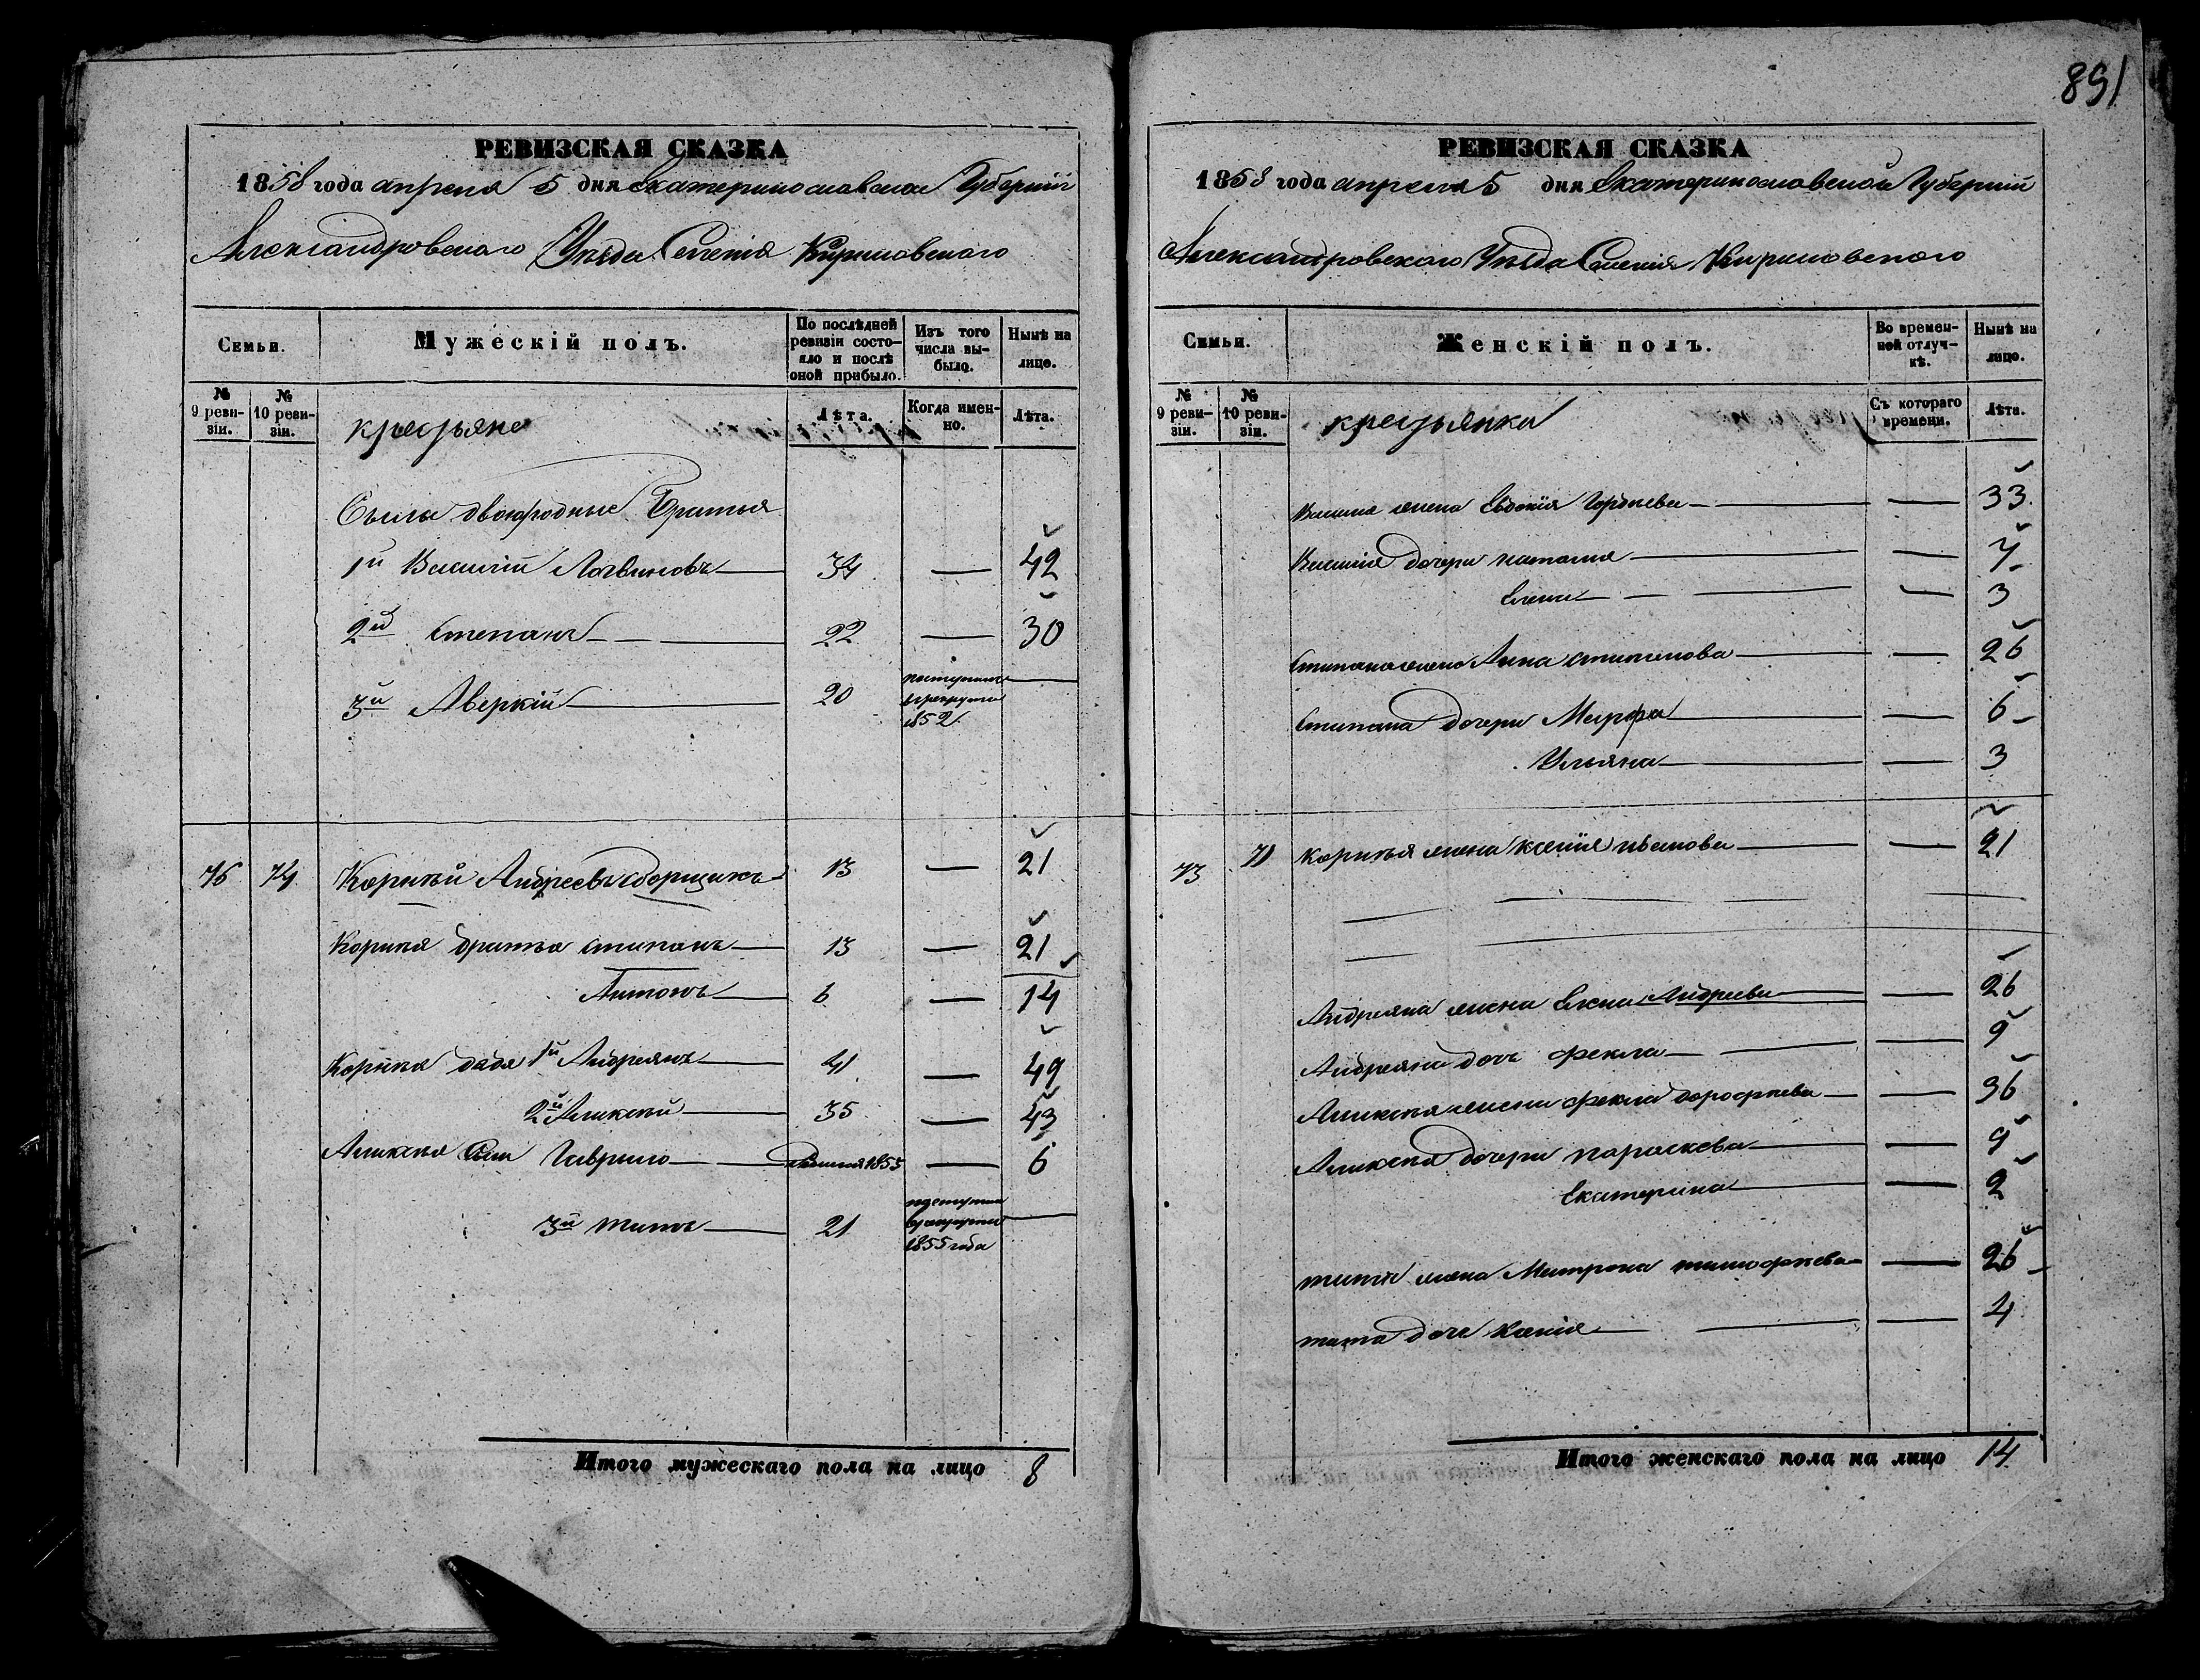 891
РЕВИЗСКАЯ СКАЗКА
1858 года апреля 5 дня Екатеринославской Губерніи
Александровскаго Уезда Селенія Кириловскаго
Семьи.
Мужескій полъ.
По послѣдней ревизіи состояло и послѣ оной прибыло.
Изъ того числа выбыло.
Нынѣ на лицо.
№ 9 ревизіи.
№ 10 ревизіи.
крестьяне
Лѣта.
Когда именно.
Лѣта.
двоюродные братья
1й Василій Логвиновъ 34 — 42
2й Степанъ 22 — 30
3й Аверкій 20 поступилъ в рекруты 1852
76 74 Корнѣй Андреевъ Сборщикъ 13 — 21
Корнѣя братья степанъ 13 — 21
Антонъ 6 — 14
Корнѣя дядя 1й Андреянъ 41 — 49
2й Аликсѣй 35 — 43
Аликсѣя сын Гаврило 1853 — 6
3й титъ 21 поступил в рекруты 1855 года
Итого мужескаго пола на лицо 8
РЕВИЗСКАЯ СКАЗКА
1858 года апреля 5 дня Екатеринославской Губерніи
Александровскаго Уезда Селенія Кириловскаго
Семьи.
Женскій полъ.
Во временной отлучкѣ.
Нынѣ на лицо.
№ 9 ревизіи.
№ 10 ревизіи.
крестьянки
Съ котораго времени.
Лѣта.
Василія жена Евдокія Гордѣева — 33
Василія дочери наталия — 7
Елена — 3
Степана жена Анна степанова — 26
Степана дочери Марфа — 6
Ульяна — 3
73 71 корнѣя жена ксенія иванова — 21
Андреяна жена Елена Андреева — 26
Андреяна дочь фекла — 9
Аликсѣя жена фекла дорофѣева — 36
Аликсѣя дочери параскева — 9
Екатерина — 2
тита жена Матрона тимофѣева — 26
тита дочь ксенія — 4
Итого женскаго пола на лицо 14